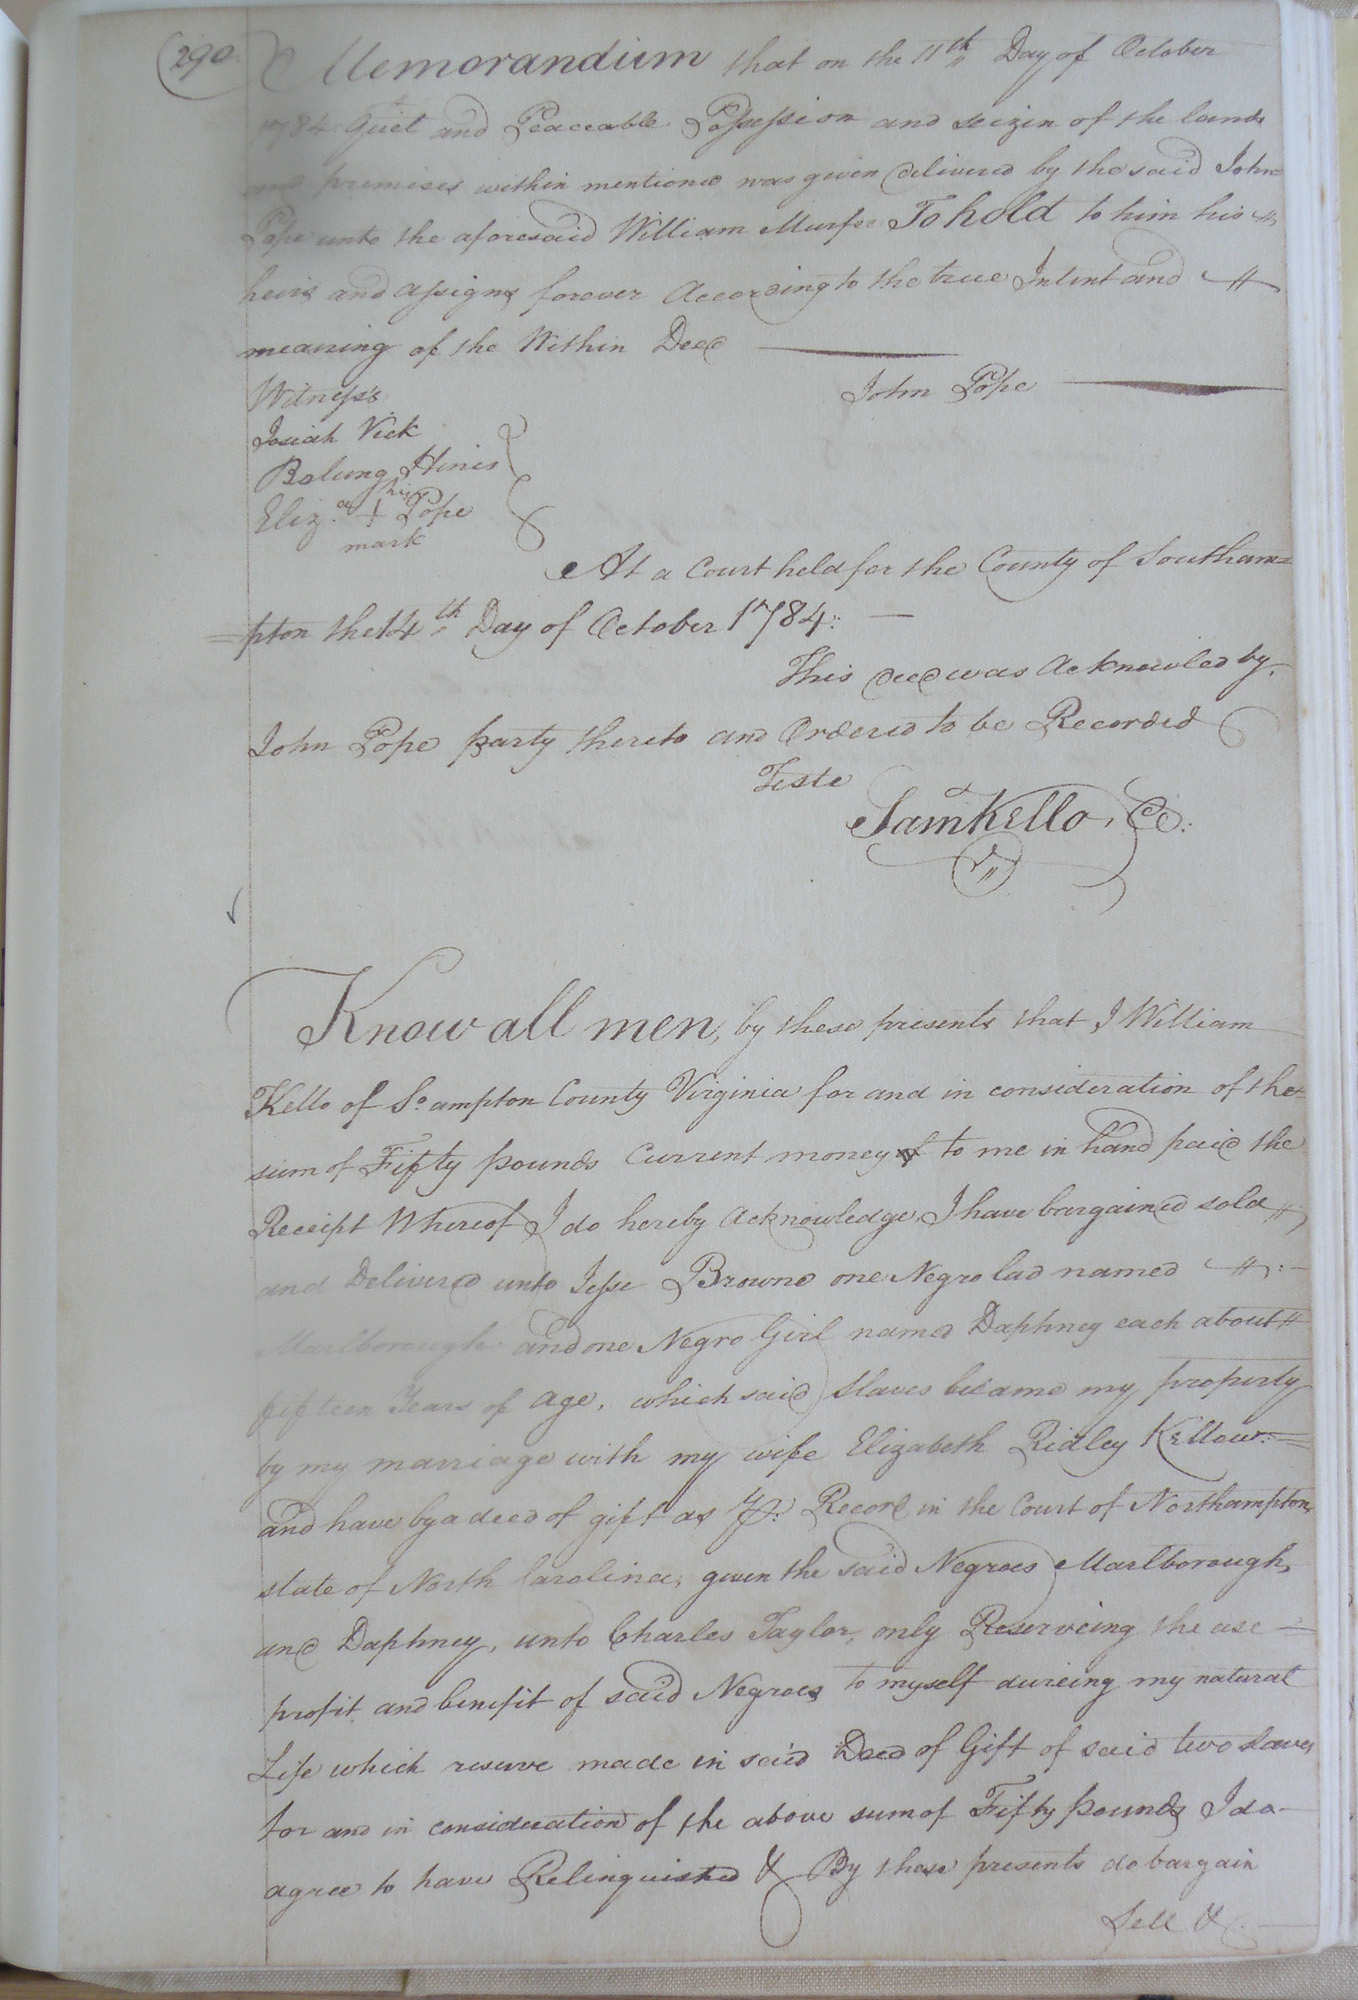 290
Memorandum that on the 11th Day of October
1784 Quiet and Peaceable Possession and seizin of the lands
and premises within mentioned was given delivered by the said John
Pope unto the aforesaid William Murfee To hold to him his
heirs and assigns forever According to the true Intent and
meaning of the Within Deed
John Pope
Witness's
Josiah Vick
Bolung Hines
his
Eliza + Pope
mark
At a Court held for the County of Southam=
=pton the 14th Day of October 1784:
This deed was Acknowled by
John Pope party thereto and Ordered to be Recorded
Teste
Saml Kello, CC:
Know all men, by these presents that I William
Kello of So ampton County Virginia for and in consideration of the
sum of Fifty pounds Current money to me in hand paid the
Receipt Whereof I do hereby Acknowledge, I have bargained sold
and Delivered unto Jesse Browne one Negro lad named
Marlborough and one Negro Girl named Daphney each about
fifteen Years of age, which said Slaves became my property
by my marriage with my wife Elizabeth Ridley Kellow:=
and have by a deed of gift as Pr. Record in the Court of Northampton,
state of North Carolina, given the said Negroes Marlborough,
and Daphney, unto Charles Taylor, only Reserveing the use
profit and benefit of said Negroes to myself dureing my natural
Life which reserve made in said Deed of Gift of said two slaves
for and in consideration of the above sum of Fifty pounds I do
agree to have Relinquished & By these presents do bargain
Sell &c.